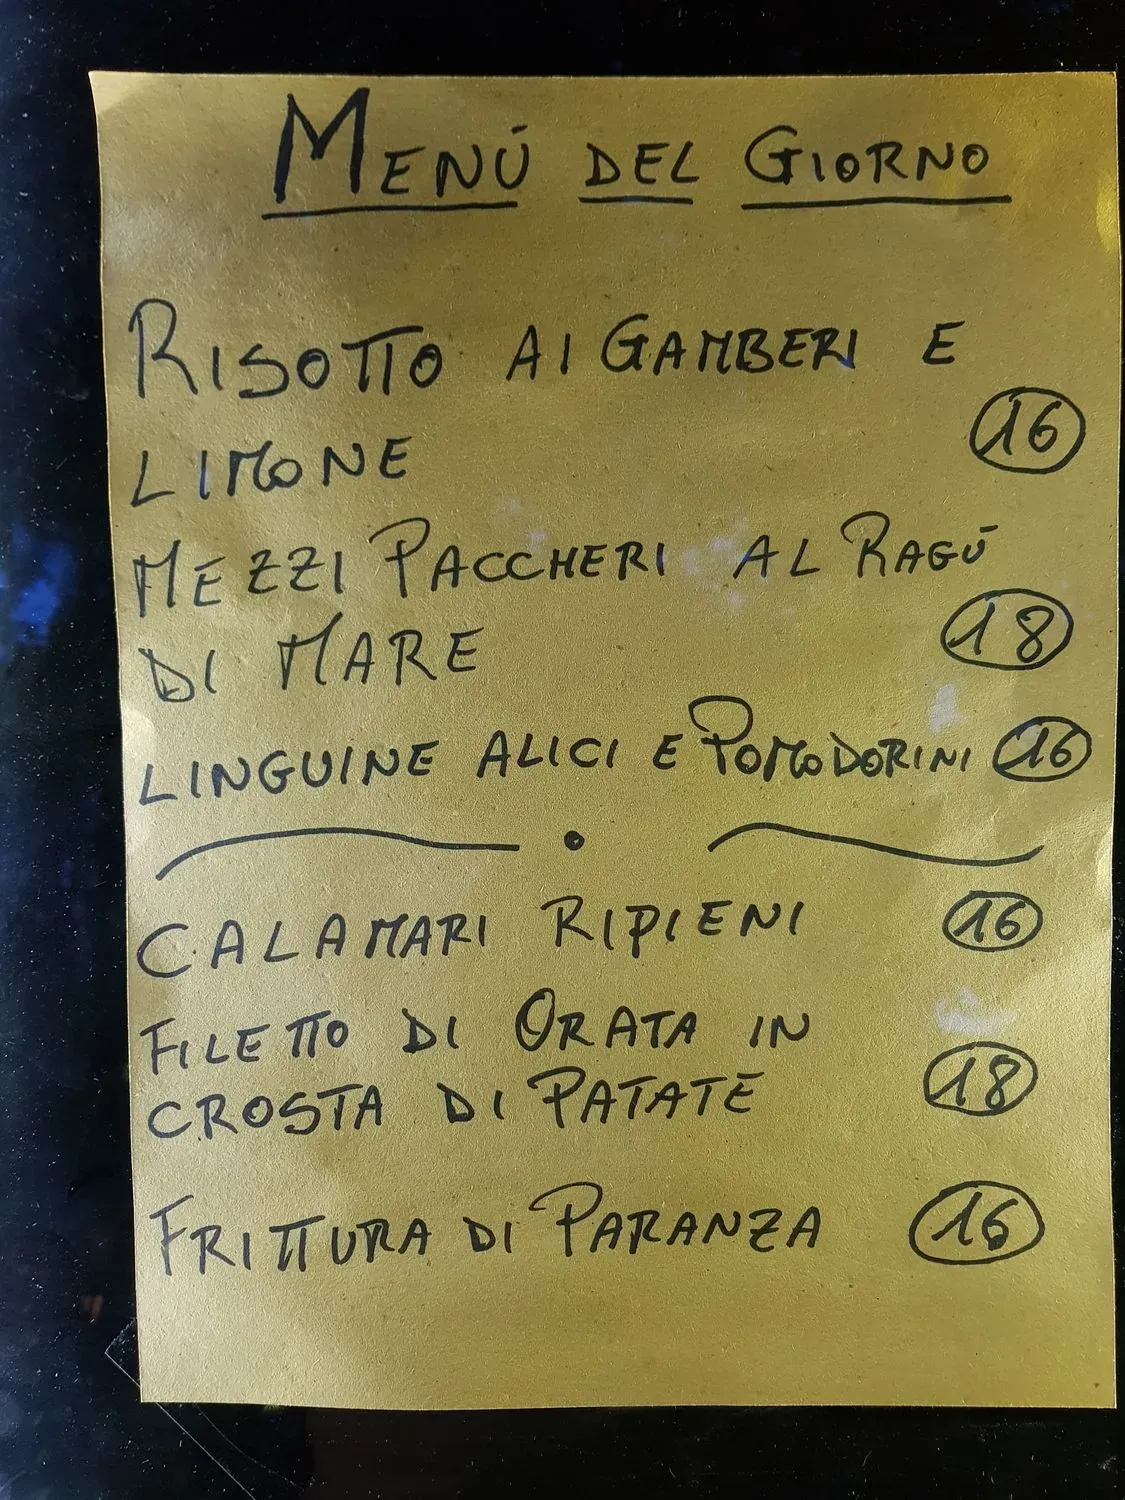 MENÚ DEL GIORNO
RISOTTO AI GAMBERI E
LIMONE 16
MEZZI PACCHERI AL RAGÚ
DI MARE 18
LINGUINE ALICI E POMODORINI 16
CALAMARI RIPIENI 16
FILETTO DI ORATA IN
CROSTA DI PATATE 18
FRITTURA DI PARANZA 16